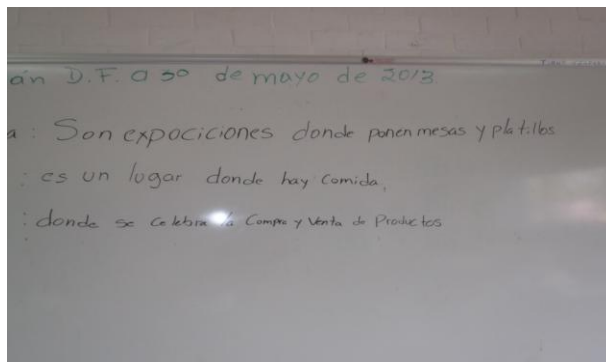 án D.F. a 30 de mayo de 2013
a: Son expociciones donde ponen mesas y platillos
: es un lugar donde hay comida.
: donde se celebra la Compra y Venta de Productos